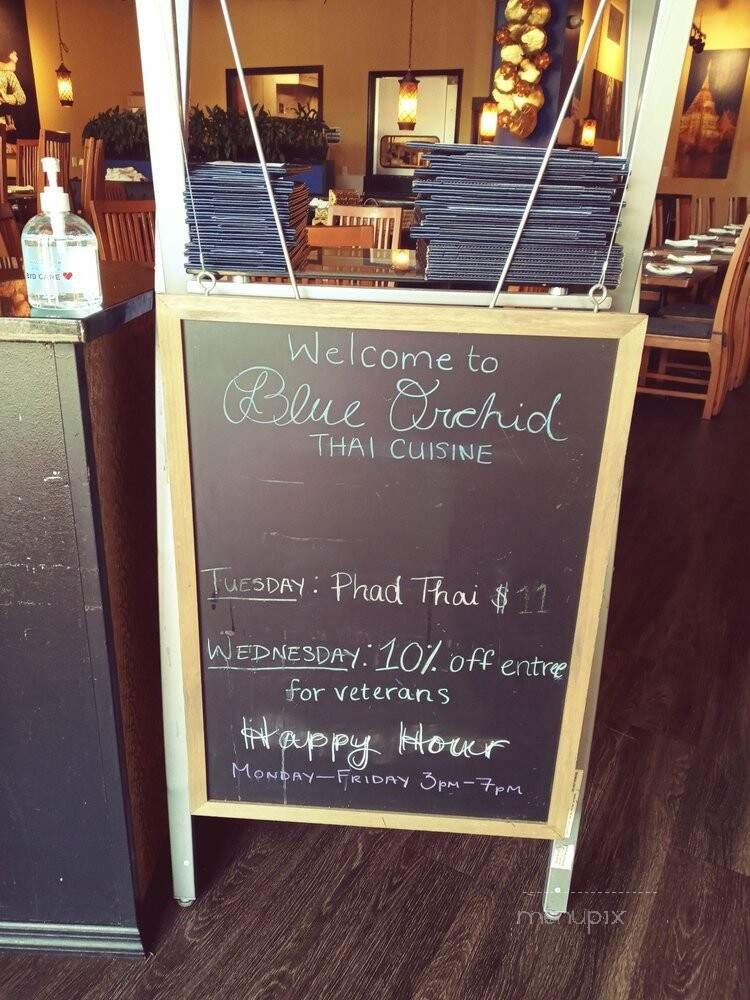 BIO CARE
Welcome to
Blue Orchid
THAI CUISINE
TUESDAY: Phad Thai $11
WEDNESDAY: 10% off entree
for veterans
Happy Hour
MONDAY—FRIDAY 3pm-7pm
menupix